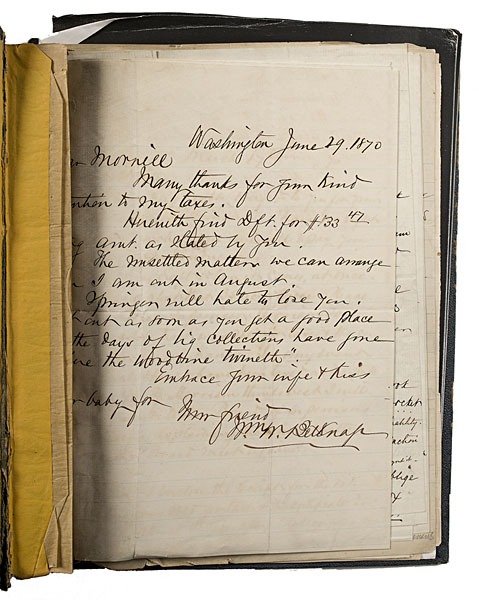 Washington June 29. 1870
Morrill
Many thanks for your kind
ention to my taxes.
Herewith find Dft. for $33 47
amt. as stated by you.
The unsettled matters we can arrange
I am out in August.
Springer will hate to lose you.
out as soon as you get a good place
the days of big collections have gone
the woodbine twineth".
Embrace your wife & kiss
baby for
Your friend
Wm. W. Belknap